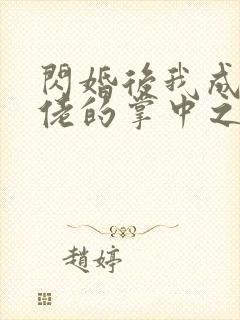 閃婚後我成
佬的掌中之
趙婷